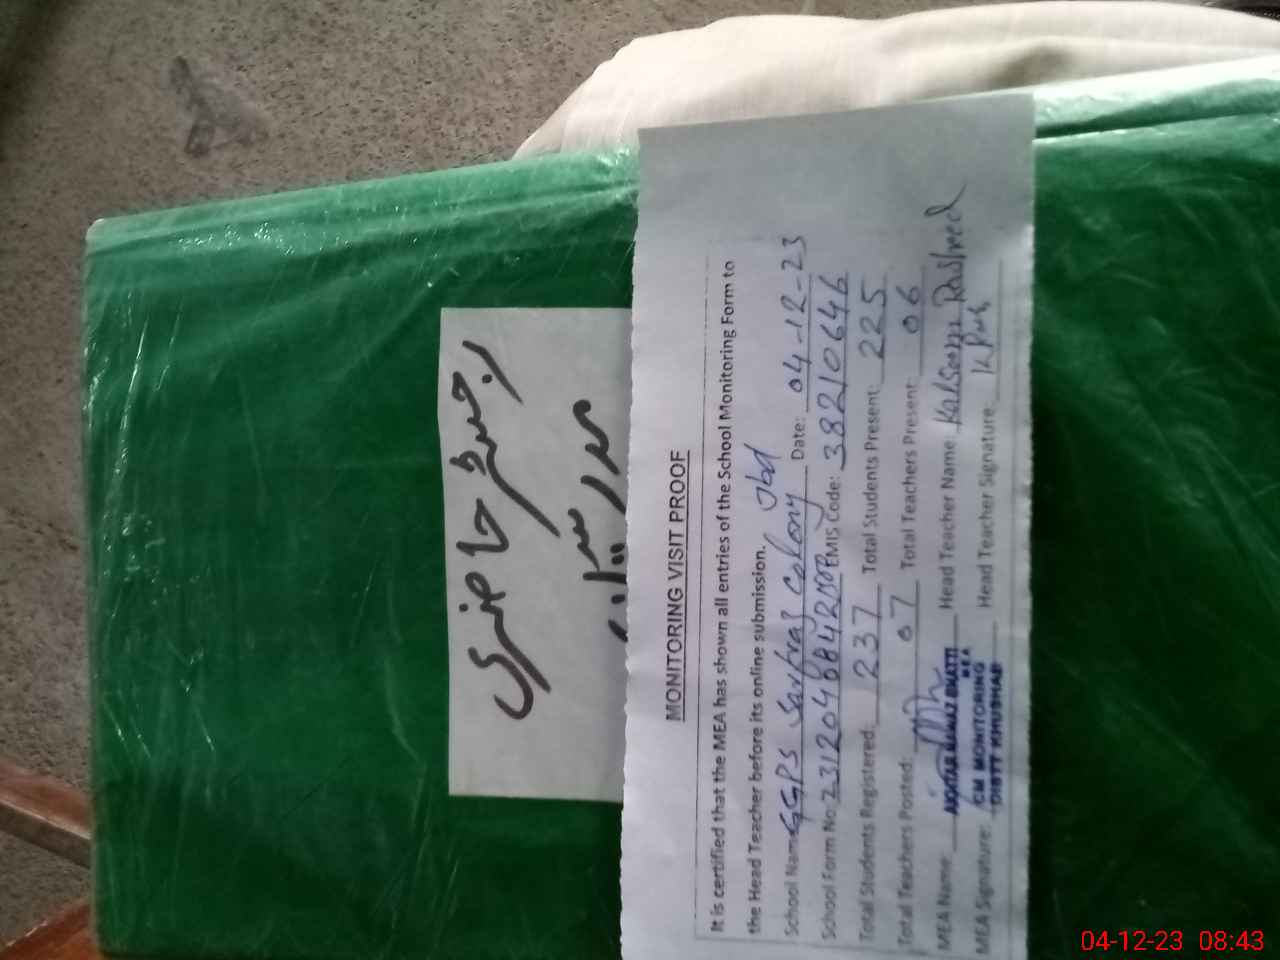 رجسٹر حاضری
مدرسین
MONITORING VISIT PROOF
It is certified that the MEA has shown all entries of the School Monitoring Form to
the Head Teacher before its online submission.
School Name GGPS Sarfraz Colony Jbd Date: 04-12-23
School Form No: EMIS Code: 38210646
Total Students Registered: 237 Total Students Present: 225
Total Teachers Posted: 07 Total Teachers Present: 06
MEA Name: AKHTAR NAWAZ BHATTI Head Teacher Name: Kalsoom Rasheed
MEA
MEA Signature: CM MONITORING Head Teacher Signature:
DISTT KHUSHAB
04-12-23 08:43